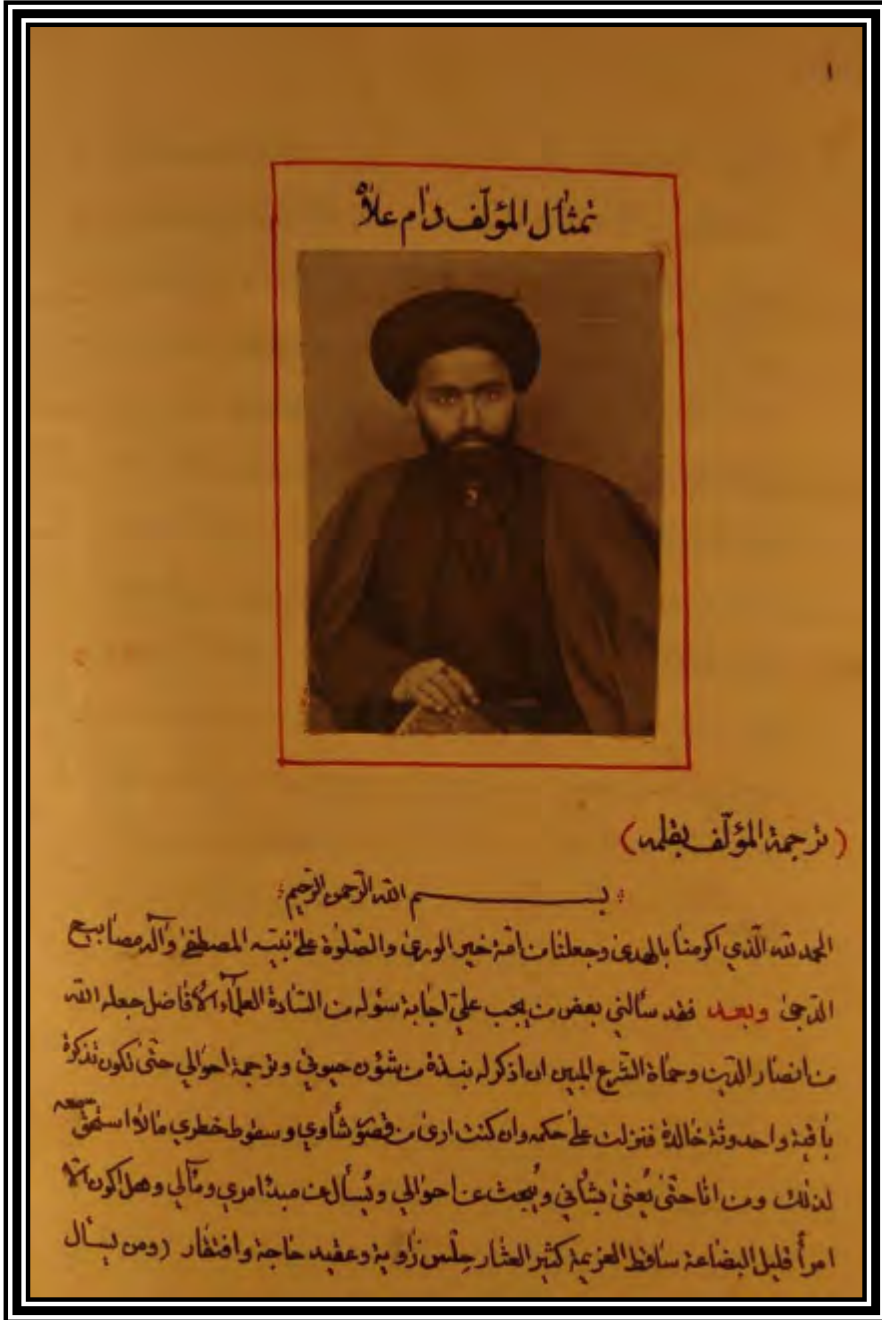 ١
تمثال المؤلّف دام علاه
(ترجمة المؤلّف بقلمه)
بسم الله الرّحمن الرّحيم
الحمد لله الّذي اكرمنا بالهدى وجعلنا من امّة خير الورى والصّلوة على نبيّه المصطفى وآله مصابيح
الدّجى وبعد فقد سألني بعض من يجب عليّ اجابة سؤله من السّادة العلماء الأفاضل جعله الله
من انصار الدّين وحماة الشّرع المبين ان اذكر له بنبذة من شؤن حيوتي وترجمة احوالي حتّى تكون تذكرة
باقية واحدوثة خالدة فنزلت على حكمه وان كنت ارى من قصور شأوي وسقوط خطري مالا استحقّ معه
لذلك ومن انا حتّى يُعنى بشأني ويُبحث عن احوالي ويُسأل عن مبدأ امري ومآلي وهل اكون الّا
امرأً قليل البضاعة ساقط العزيمة كثير العثار حِلْس زاوية وعقيد حاجة وافتقار (ومن يسأل